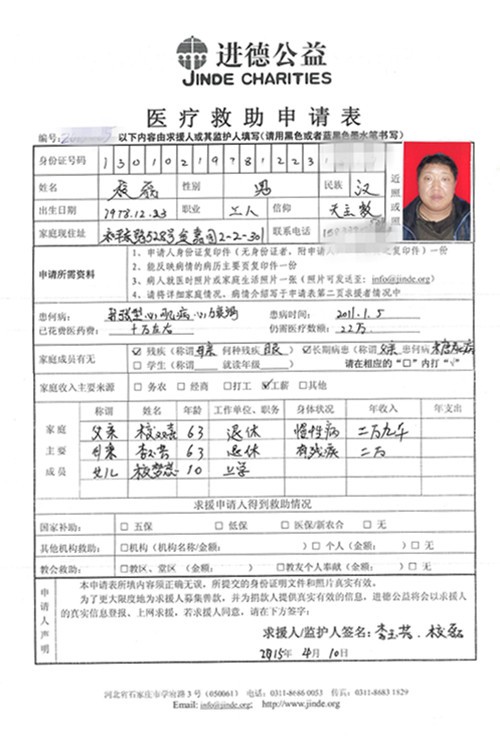 进德公益
JINDE CHARITIES
医疗救助申请表
编号: 以下内容由求援人或其监护人填写(请用黑色或者蓝黑色墨水笔书写)
身份证号码 1 3 0 1 0 2 1 9 7 8 1 2 2 3
姓名 性别 男 民族 汉
近照或
出生日期 1978.12.23 职业 工人 信仰 天主教
家庭现住址 528号 2-2-301 联系电话
申请所需资料
1、申请人身份证复印件(无身份证者,附申请人 之复印件)一份
2、能反映病情的病历主要页复印件一份
3、病人就医照片或家庭生活照片一张(照片可发送至:info@jinde.org)
4、请将详细家庭情况、病情介绍写于申请表第二页求援者情况中
患何病: 扩张型心肌病 心力衰竭 患病时间: 2011.1.5
已花费医药费: 十万左右 仍需医疗数额: 22万
家庭成员有无 ☑残疾(称谓 母亲 何种残疾 ) ☑长期病患(称谓 父亲 患何病 )
□学生(称谓 就读年级 ) 请在相应的“□”内打“√”
家庭收入主要来源 □务农 □经商 □打工 ☑工薪 □其他
家庭主要成员
称谓 姓名 年龄 工作单位、职务 身体状况 年收入 年支出
父亲 63 退休 慢性病 二万九千
母亲 李玉芸 63 退休 有残疾 二万
女儿 10 上学
求援申请人得到救助情况
国家补助: □五保 □低保 □医保/新农合 □无
其他机构救助: □机构(机构名称/金额: ) □个人(金额: ) □无
教会救助: □教区、堂区(金额: ) □教友个人奉献(金额: ) □无
申请人声明
本申请表所填内容须正确无误,所提交的身份证明文件和照片真实有效。
为了更大限度地为求援人募集善款,并为捐款人提供真实有效的信息,进德公益将会以求援人
的真实信息登报、上网求援,若求援人同意,请在下方签字:
求援人/监护人签名: 李玉芸、校磊
2015年 4月 10日
河北省石家庄市学府路3号(050061) 电话:0311-8686 0053 传真:0311-8683 1829
Email: info@jinde.org; http://www.jinde.org